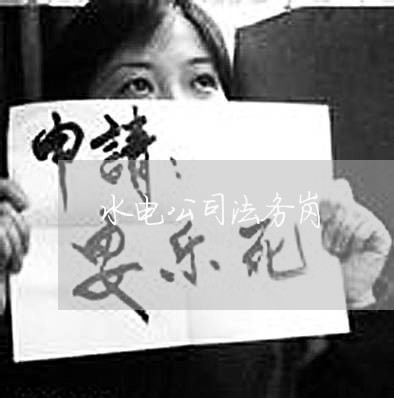 申請:
水电公司法务岗
安乐死